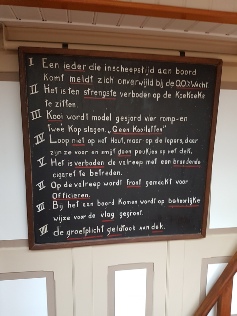 I Een ieder die inscheepstijd aan boord
komt meldt zich onverwijld bij de O.O.V. Wacht.
II Het is ten strengste verboden op de KoeKoeKe
te zitten.
III Kooi wordt model gesjord vier romp- en
twee Kop slagen. "Geen Kooiletten"
IV Loop niet op het Hout, maar op de lopers, daar
zijn ze voor en smijt geen peukjes op het dek.
V Het is verboden de valreep met een brandende
cigaret te betreden.
VI Op de valreep wordt front gemaakt voor
Officieren.
VII Bij het aan boord Komen wordt op behoorlijke
wijze voor de vlag gegroet.
VIII de groetplicht geldt ook aan dek.